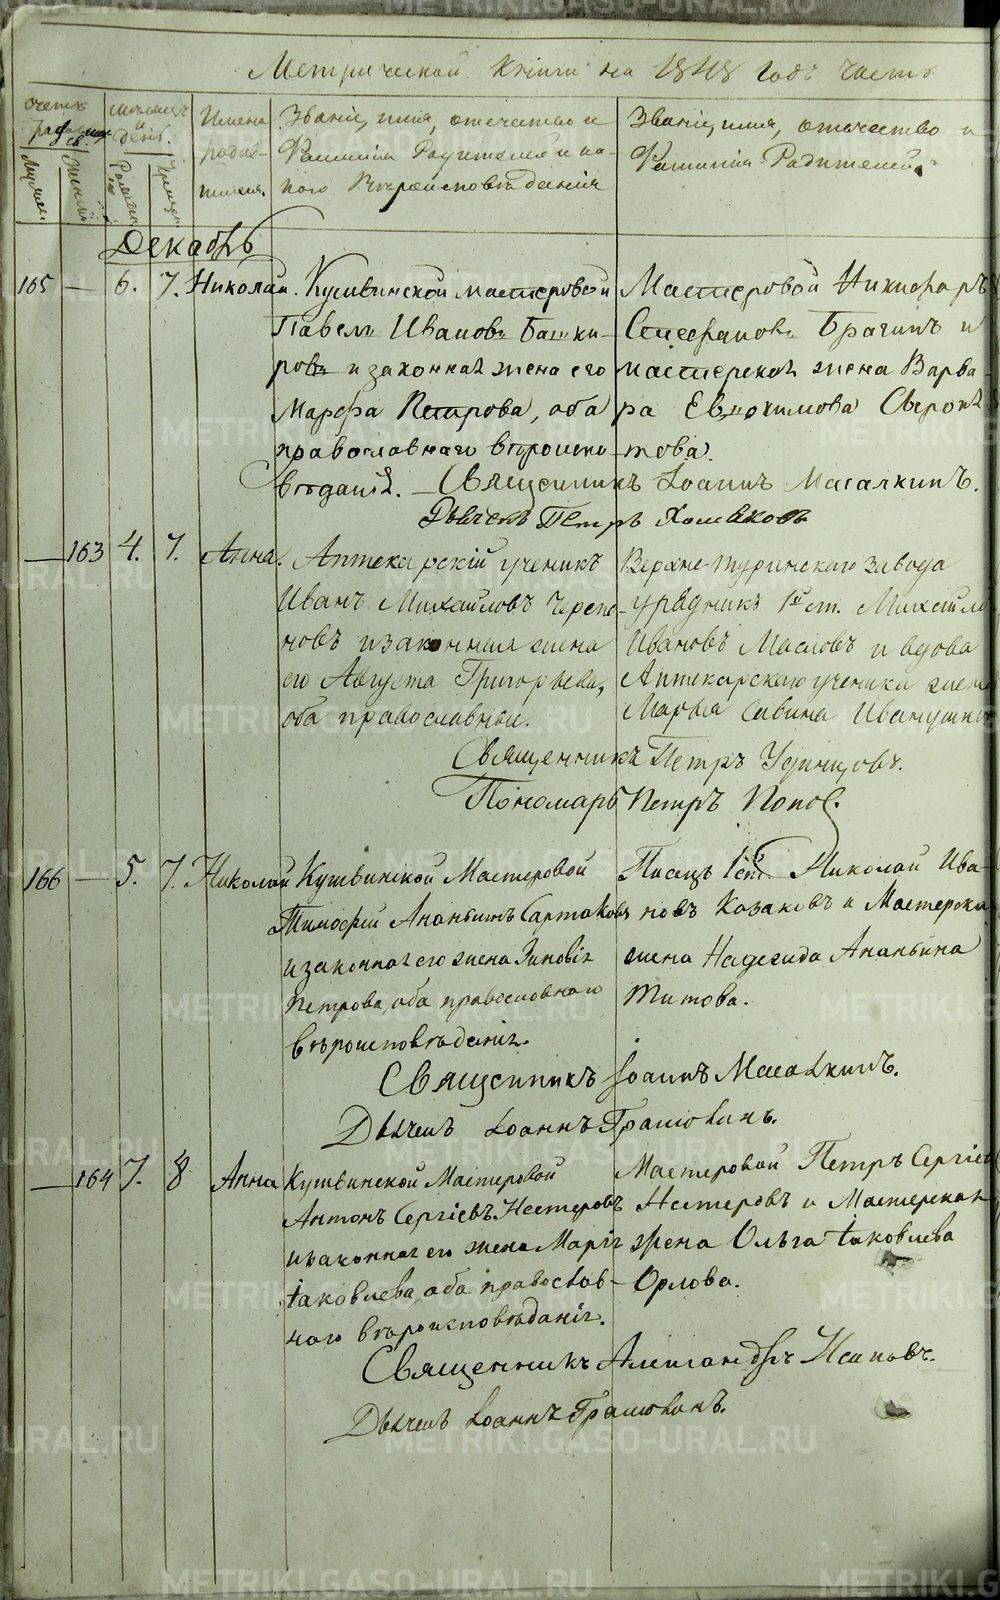 Метрической Книги на 1848 годъ часть
Счетъ родившихся
Мужеска
Женска
мѣсяцъ и день.
Рожденія
Крещенія
Имена родив-
шихся.
Званіе, имя, отечество и
Фамилія Родителей и ка-
кого Вѣроисповѣданія
Званіе, имя, отечество и
Фамилія Родителей
Декабрь
165 — 6. 7. Николай. Кушвинской мастеровой
Павелъ Ивановъ Башки-
ровъ и законная жена его
Марфа Петрова, оба
православнаго вѣроиспо-
вѣданія.
Мастеровой Никифоръ
Стефановъ Брагинъ и
мастерская жена Варва-
ра Евдокимова
това.
Священникъ Іоаннъ Масалкинъ.
Дьячекъ Петръ Хомяковъ
— 163 4. 7. Анна. Аптекарскій ученикъ
Иванъ Михайловъ Черепа-
новъ и законная жена
его Августа Григорьева,
оба православные.
Верхне-туринскаго завода
урядникъ 1й ст. Михайло
Ивановъ Масловъ и вдова
Аптекарскаго ученика жена
Марья Савина
Священникъ Петръ Удинцовъ.
Пономарь Петръ Поповъ.
166 — 5. 7. Николай Кушвинской Мастеровой
Тимофей Ананьинъ Сартаковъ
и законная его жена Зиновія
Петрова, оба православнаго
вѣроисповѣданія.
Писецъ 1 ст. Николай Ива-
новъ Казаковъ и Мастерская
жена Надежда Ананьина
Титова.
Священникъ Іоаннъ Масалкинъ.
Дьячекъ Іоаннъ
— 164 7. 8 Анна Кушвинской Мастеровой
Антонъ Сергіевъ Нестеровъ
и законная его жена Марія
Іаковлева, оба православ-
наго вѣроисповѣданія.
Мастеровой Петръ Сергіевъ
Нестеровъ и Мастерская
жена Ольга Іаковлева
Орлова.
Священникъ Александръ
Дьячекъ Іоаннъ
METRIKI.GASO-URAL.RU